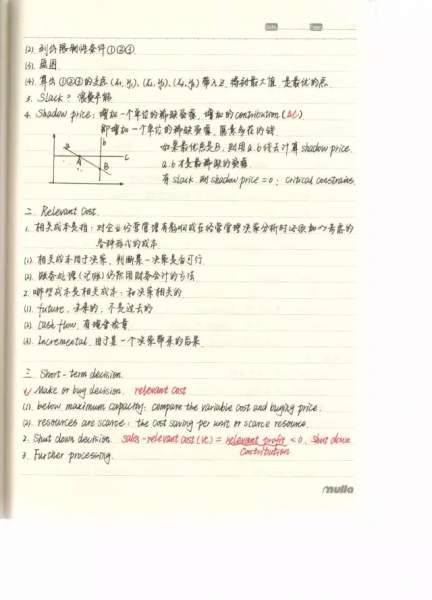 (2). 列出限制性条件①②③
(3). 画图
(4). 算出①②③的交点(x₁, y₁), (x₂, y₂), (x₃, y₃) 带入z, 得到最大值, 是最优的点.
3. Slack?
4. Shadow price: 增加一个单位的稀缺资源, 增加的contribution (ΔC)
即增加一个单位的稀缺资源, 愿意多花的钱
如果最优点是B, 则用a.b线去计算shadow price.
a.b才是最稀缺的资源
有slack 则shadow price = 0; critical constrains.
a b c A B
二. Relevant Cost.
1. 相关成本是指: 对企业经营管理有影响或在经营管理决策分析时必须加以考虑的
各种形式的成本
(1) 相关成本用于决策, 判断某一决策是否可行
(2) 账务处理(记账)仍沿用财务会计的方法
2. 哪些成本是相关成本: 和决策相关的.
(1). future, 未来的, 不是过去的
(2). Cash flow, 有现金
(3). Incremental, 由于某一个决策带来的后果
三. Short-term decision.
1. Make or buy decision. relevant cost
(1). below maximum capacity: compare the variable cost and buying price.
(2). resources are scarce: the cost saving per unit of scarce resource.
2. Shut down decision. sales-relevant cost (vc) = relevant profit < 0, shut down
contribution
3. Further processing.
mulla